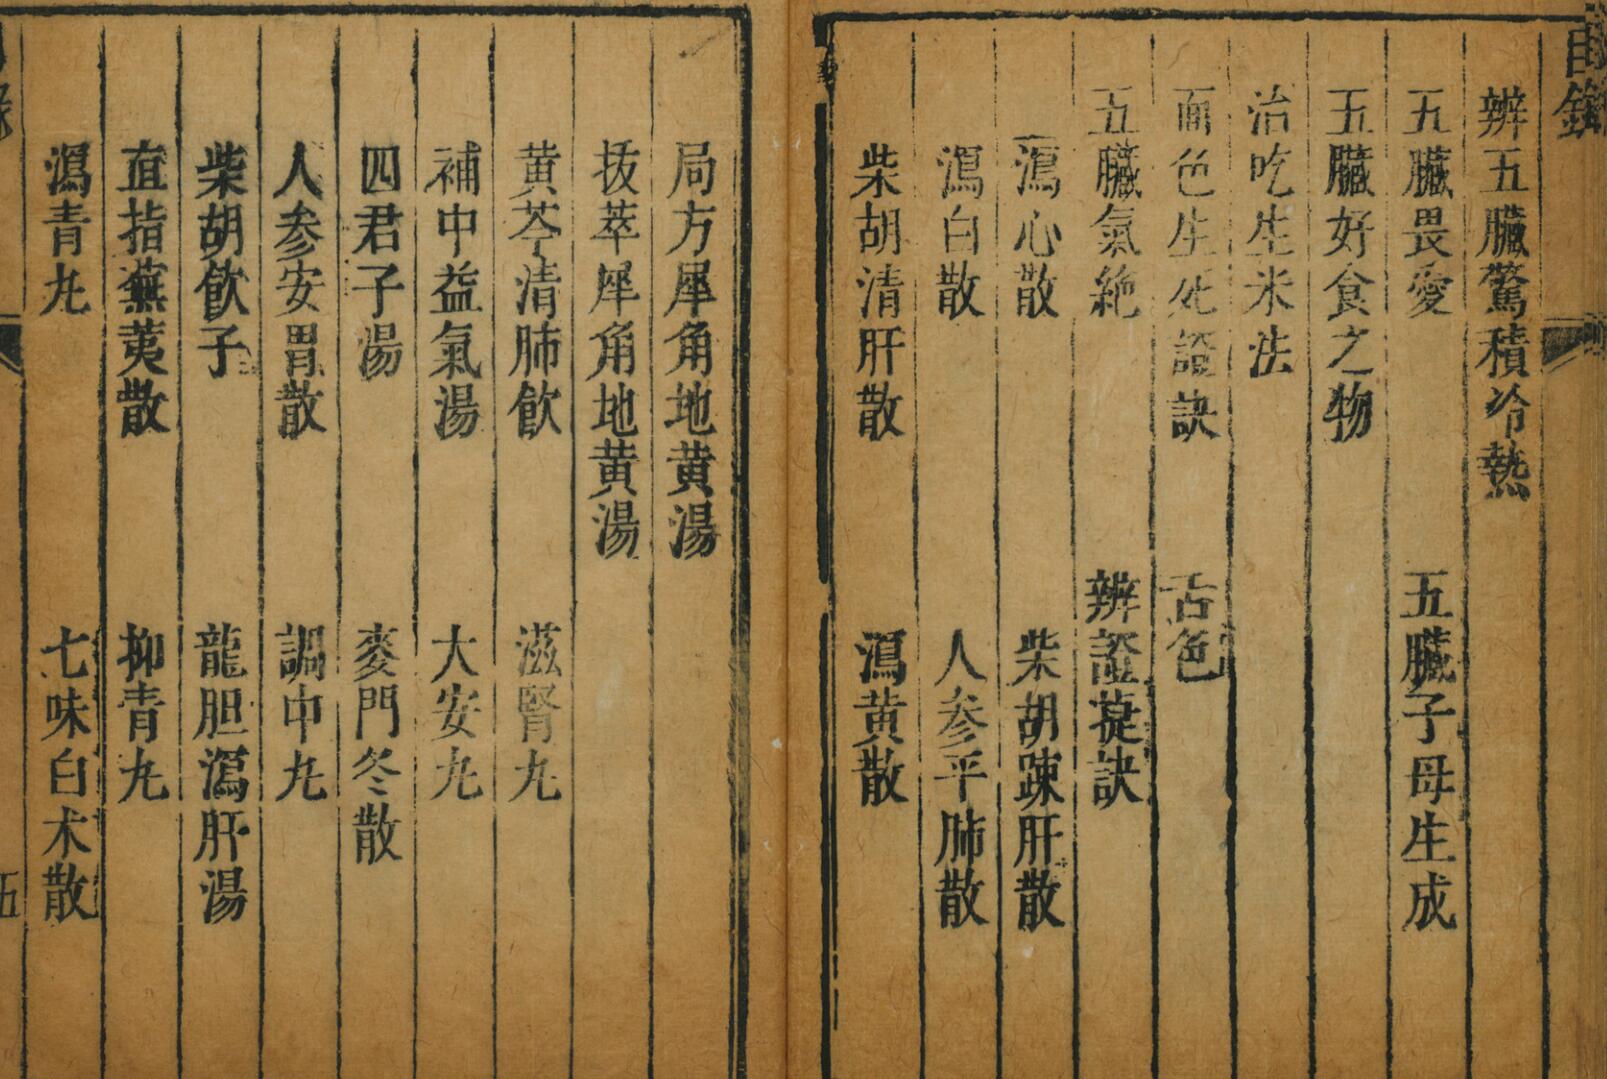 目錄
辨五臟驚積冷熱
五臟畏愛 五臟子母生成
五臟好食之物
治吃生米法
面色生死證訣 舌色
五臟氣絶 辨證捷訣
瀉心散 柴胡踈肝散
瀉白散 人參平肺散
柴胡清肝散 瀉黃散
局方犀角地黃湯
拔萃犀角地黃湯
黃芩清肺飲 滋腎丸
補中益氣湯 大安丸
四君子湯 麥門冬散
人參安胃散 調中丸
柴胡飲子 龍胆瀉肝湯
直指蕪荑散 抑青丸
瀉青丸 七味白术散
錄
五